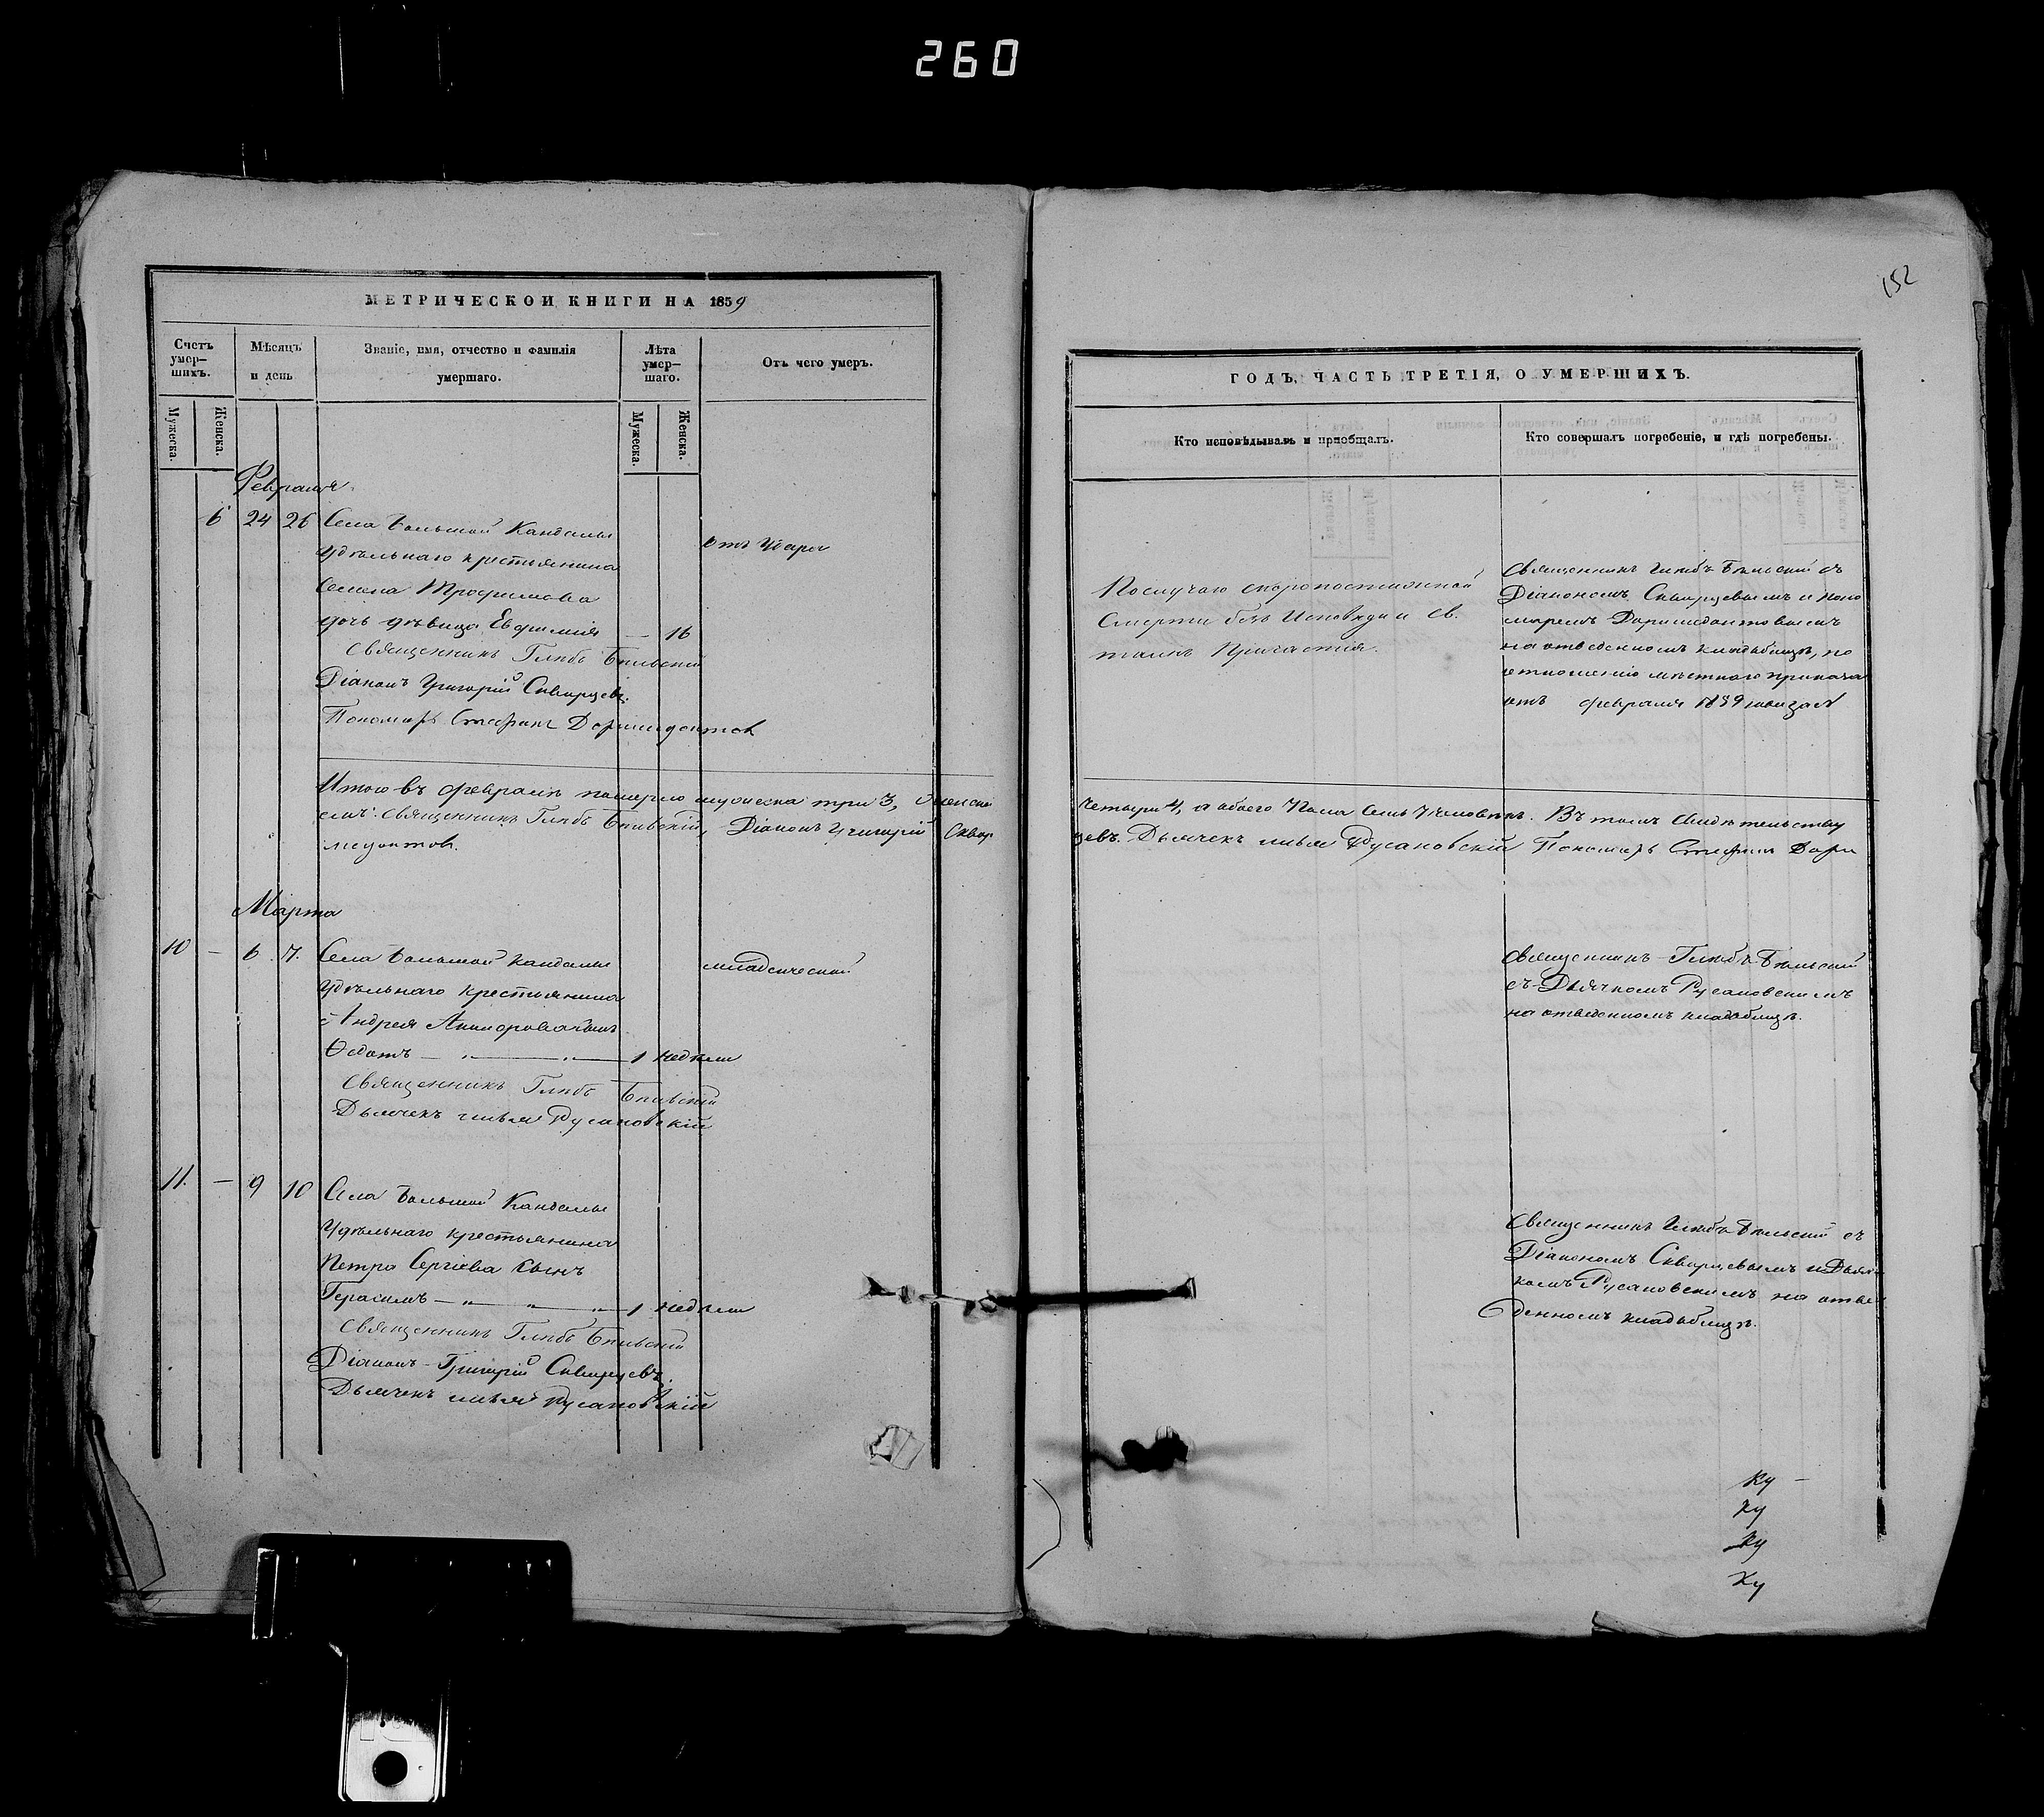 260
152
МЕТРИЧЕСКОЙ КНИГИ НА 1859
Счетъ умер-
шихъ.
Мѣсяцъ
и день
Званіе, имя, отчество и фамилія
умершаго.
Лѣта
умер-
шаго.
Отъ чего умеръ.
Мужеска.
Женска.
Мужеска.
Женска.
Февраля
6 24 26 Села Большой Кандалы
Удѣльнаго крестьянина
Семена Трофимова
дочь дѣвица Евфимія — 16
отъ Удара
Священникъ Глѣбъ Бѣльскій
Діаконъ Григорій Скворцевъ.
Пономарь Стефанъ Доримедонтов
Итого въ февралѣ померло мужеска три 3, женска
емъ: Священникъ Глѣбъ Бѣльскій, Діаконъ Григорій Сквор
медонтов.
Марта
10 — 6 7. Села Большой Кандалы
Удѣльнаго крестьянина
Андрея сынъ
Ѳедотъ — „ — „ — 1 недѣли
младенческой
Священникъ Глѣбъ Бѣльскій
Дьячекъ Илья Русановскій
11. — 9 10 Села Большой Кандалы
Удѣльнаго крестьянина
Петра Сергіева сынъ
Герасимъ — „ „ „ 1 недѣли
Священникъ Глѣбъ Бѣльскій
Діаконъ Григорій Скворцевъ.
Дьячекъ Илья Русановскій
ГОДЪ, ЧАСТЬ ТРЕТІЯ, О УМЕРШИХЪ.
Кто исповѣдывалъ и пріобщалъ.
Кто совершалъ погребеніе, и гдѣ погребены.
По случаю скоропостижной
Смерти безъ Исповѣди и Св.
таинъ Причастія.
Священникъ Глѣбъ Бѣльскій съ
Діакономъ Скворцевымъ и поно
маремъ Доримедонтовымъ
на отведенномъ кладбищѣ, по
отношенію мѣстнаго приказа
отъ февраля 1859 года за №
четыре 4, а обоего Пола Семь 7 человѣкъ. Въ томъ Свидѣтельству
цевъ. Дьячекъ Илья Русановскій Пономарь Стефан Дори
Священникъ Глѣбъ Бѣльскій
съ Дьячкомъ Русановскимъ
на отведенномъ кладбищѣ.
Священникъ Глѣбъ Бѣльскій съ
Діакономъ Скворцевымъ и Дьяч
комъ Русановскимъ на отве
денномъ кладбищѣ.
Ку —
Ку
Ку
Ку